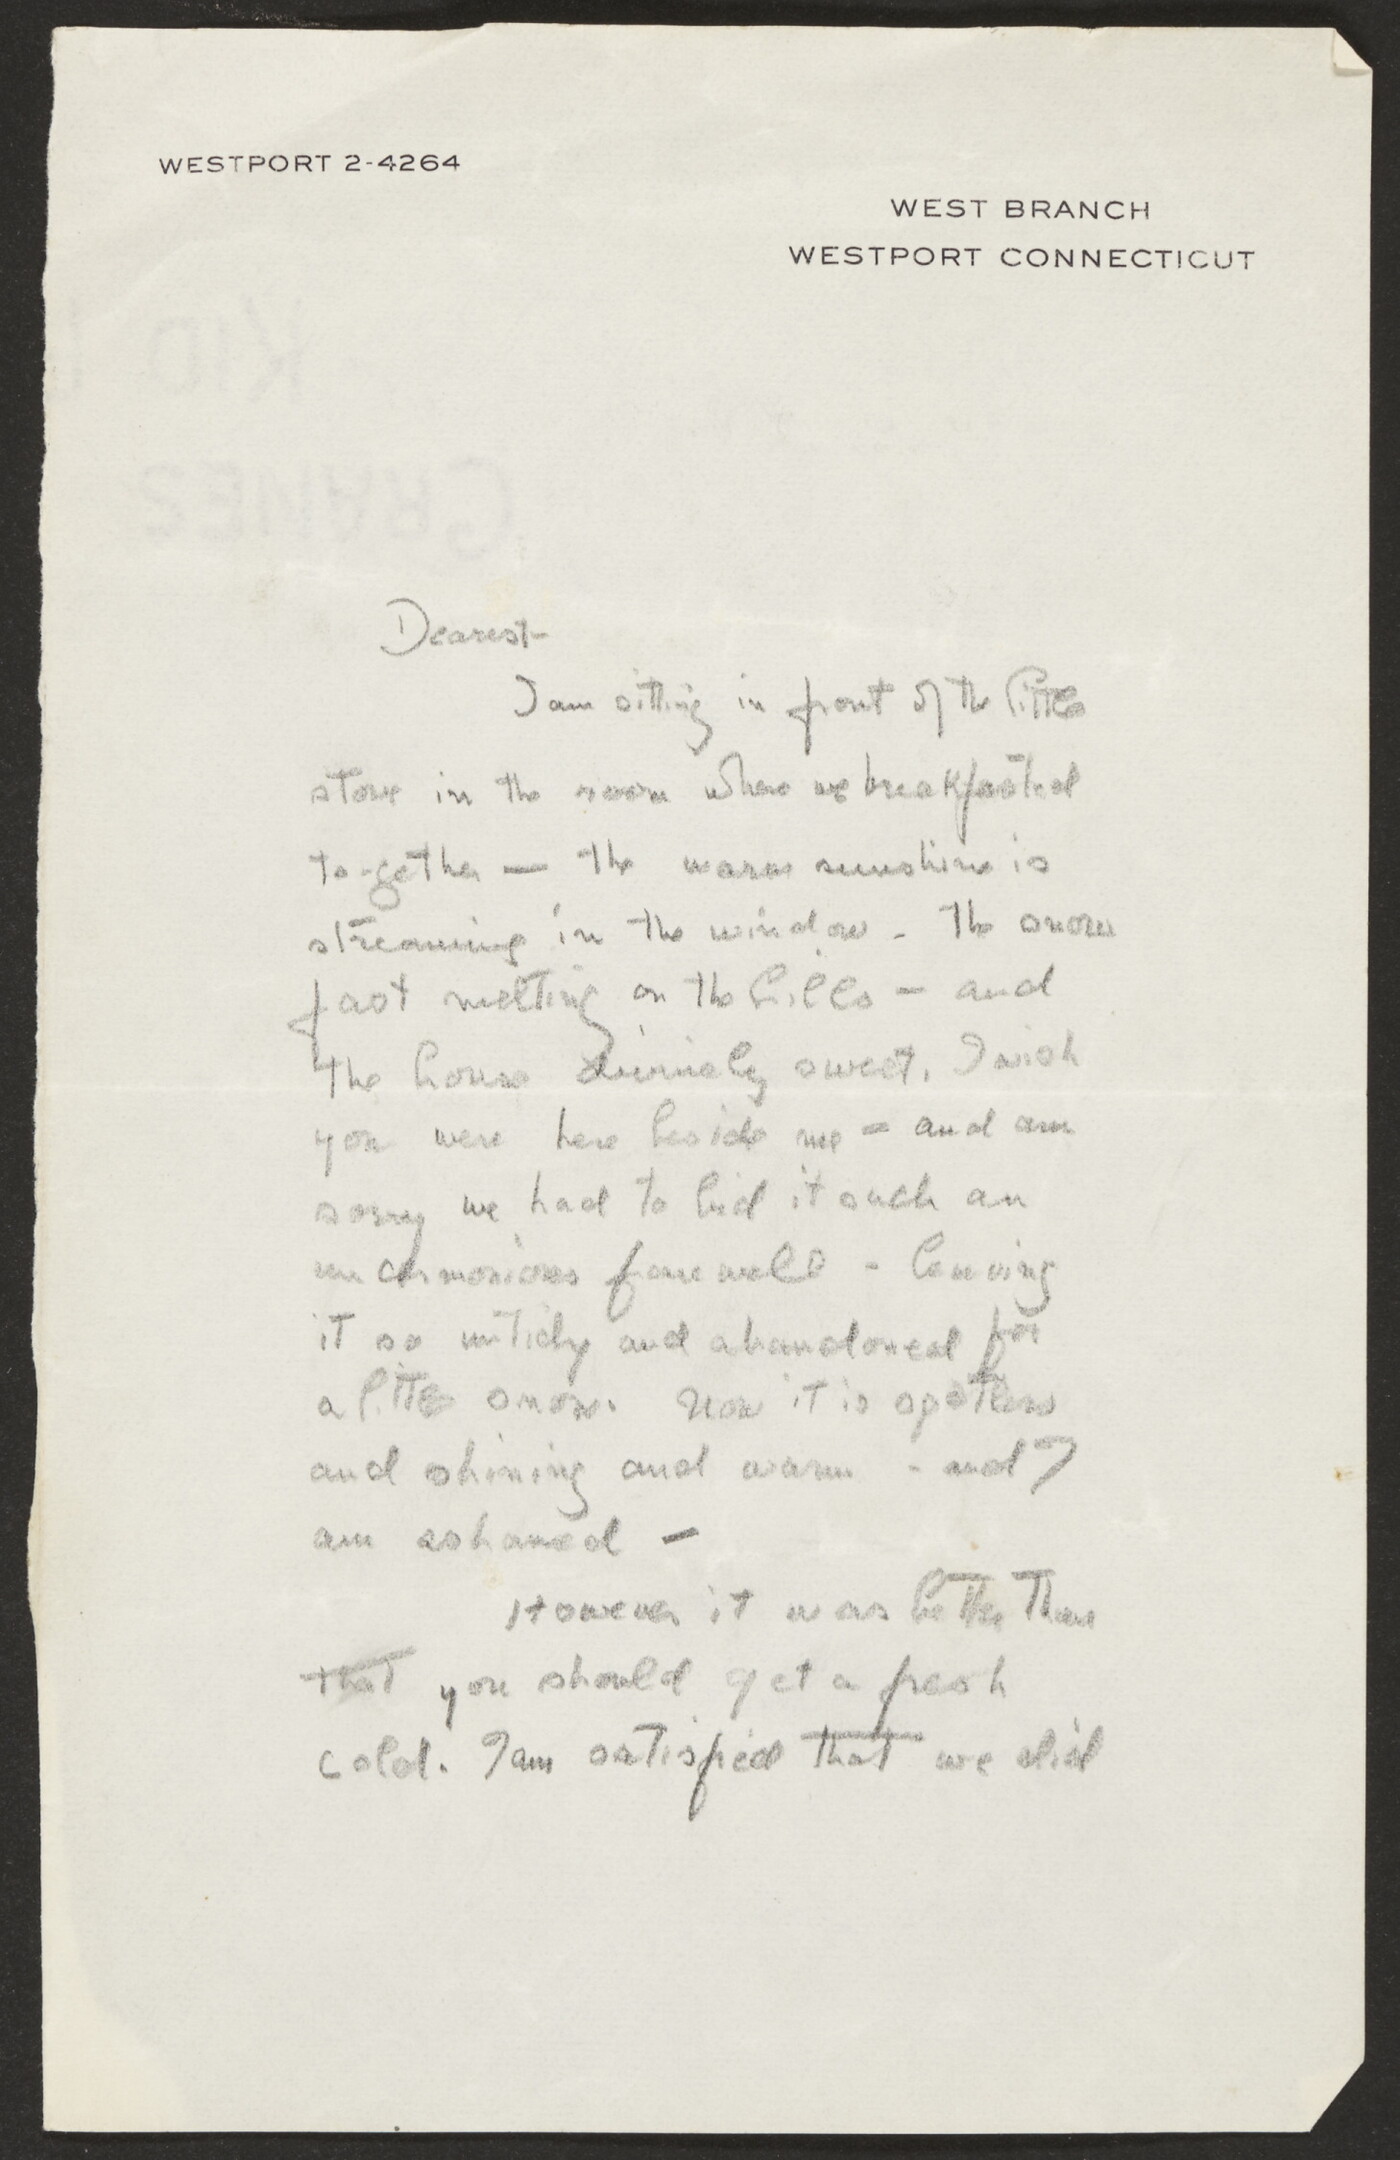 WESTPORT 2-4264
WEST BRANCH
WESTPORT CONNECTICUT
Dearest-
I am sitting in front of the little
stove in the room where we breakfasted
to-gether — the warm sunshine is
streaming in the window - the snow
fast melting on the hills - and
the house divinely sweet. I wish
you were here beside me - and am
sorry we had to bid it such an
uncermonious farewell - leaving
it so untidy and abandoned for
a little snow. Now it is spotless
and shining and warm - and I
am ashamed -
However it was better than
that you should get a fresh
cold. I am satisfied that we did